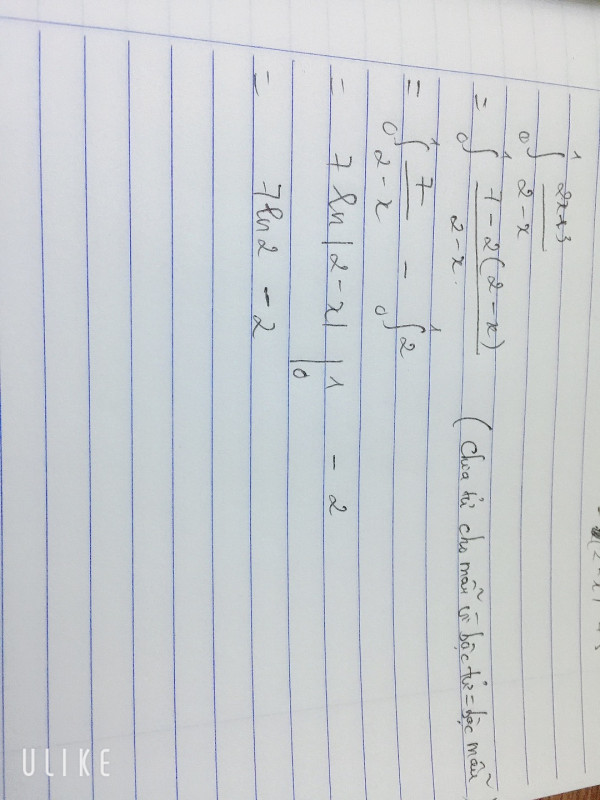 ∫₀¹ 2x+3 / 2-x
= ∫₀¹ 7-2(2-x) / 2-x . (chia tử cho mẫu vì bậc tử = bậc mẫu
= ∫₀¹ 7 / 2-x - ∫₀¹ 2
= 7 ln|2-x| |₀¹ - 2
= 7 ln 2 - 2
ULIKE